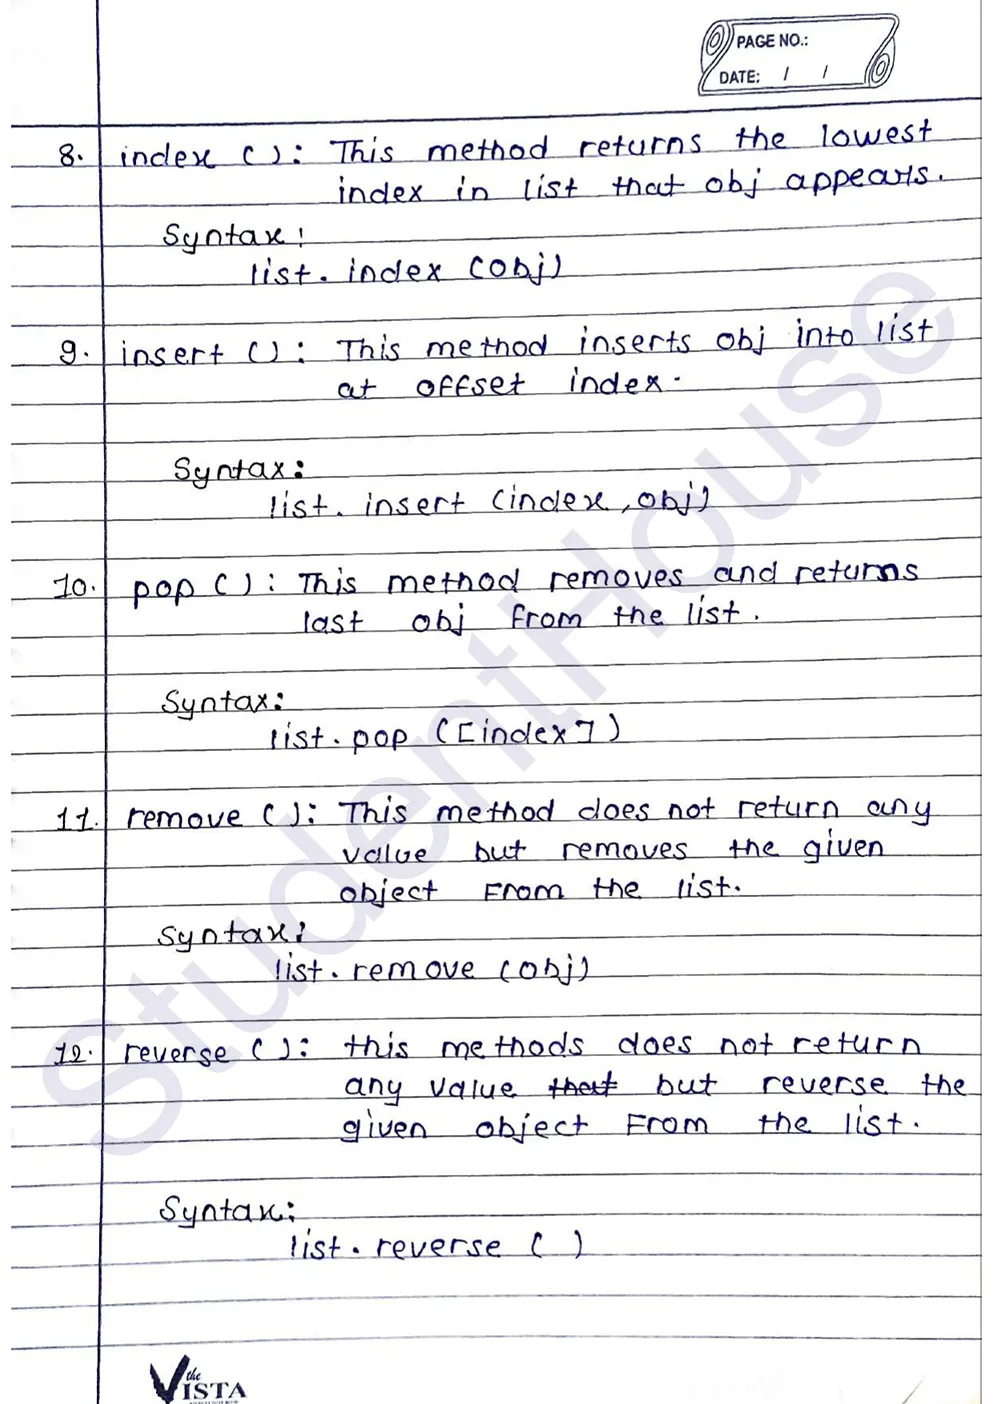 PAGE NO.:
DATE: / /
8. index ( ): This method returns the lowest
index in list that obj appears.
Syntax:
list. index (obj)
9. insert ( ): This method inserts obj into list
at offset index.
Syntax:
list. insert (index, obj)
10. pop ( ): This method removes and returns
last obj from the list.
Syntax:
list. pop ([index])
11. remove ( ): This method does not return any
value but removes the given
object from the list.
Syntax:
list. remove (obj)
12. reverse ( ): this methods does not return
any value that but reverse the
given object from the list.
Syntax:
list. reverse ( )
StudentHouse
the VISTA